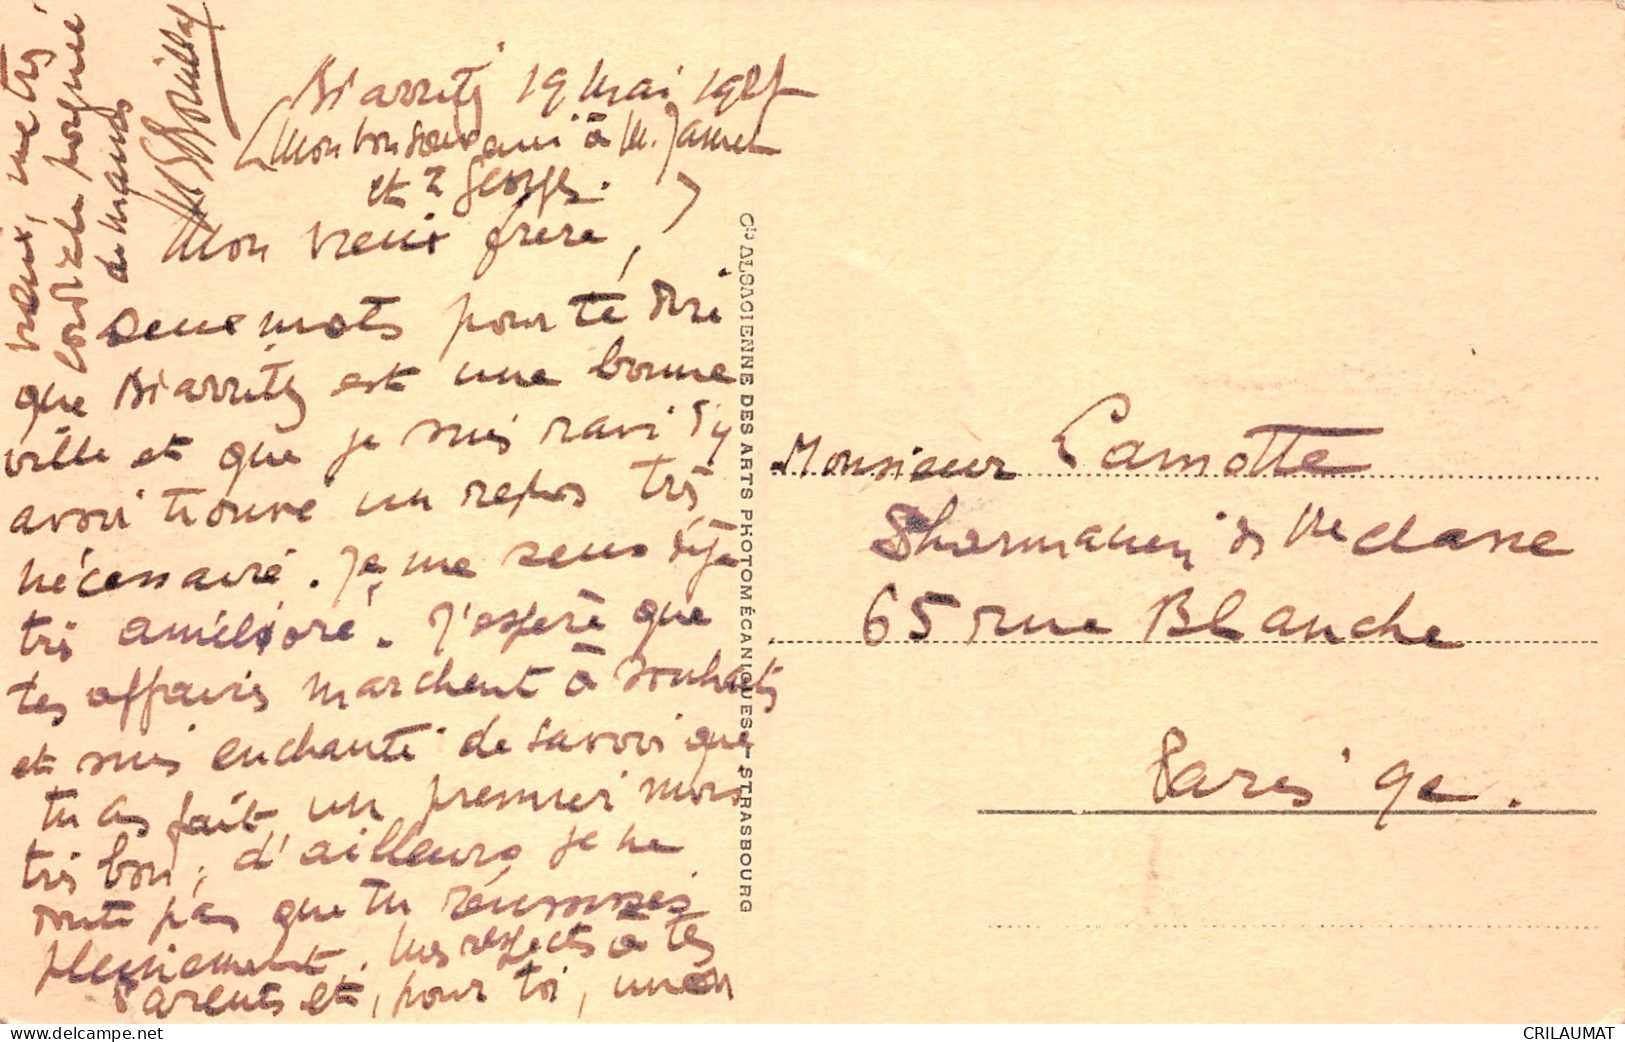 Biarritz 19 Mai
(Mon bon souvenir à M.
et à Georges.)
Mon vieux frère,
deux mots pour te dire
que Biarritz est une bonne
ville et que je suis ravi d'y
avoir trouvé un repos très
nécessaire. Je me sens déjà
très amélioré. J'espère que
tes affaires marchent à souhaits
et suis enchanté de savoir que
tu as fait un premier mois
très bon; d'ailleurs je ne
doute pas que tu réussisses
pleinement. Mes respects à tes
Parents et, pour toi, mon
vieux, une très
cordiale poignée
de mains
Cie ALSACIENNE DES ARTS PHOTOMÉCANIQUES - STRASBOURG
Monsieur Lamotte
Pharmacien de 1re classe
65 rue Blanche
Paris 9e.
CRILAUMAT